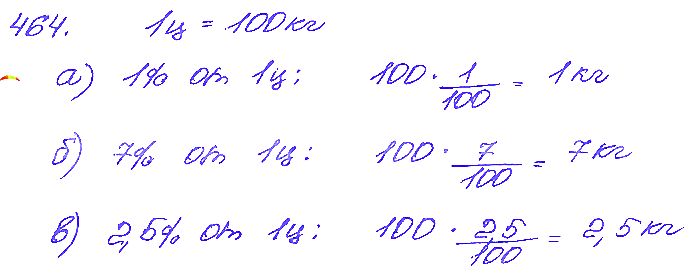 464. 1ц = 100кг
а) 1% от 1ц: 100 · 1/100 = 1кг
б) 7% от 1ц: 100 · 7/100 = 7кг
в) 2,5% от 1ц: 100 · 2,5/100 = 2,5кг